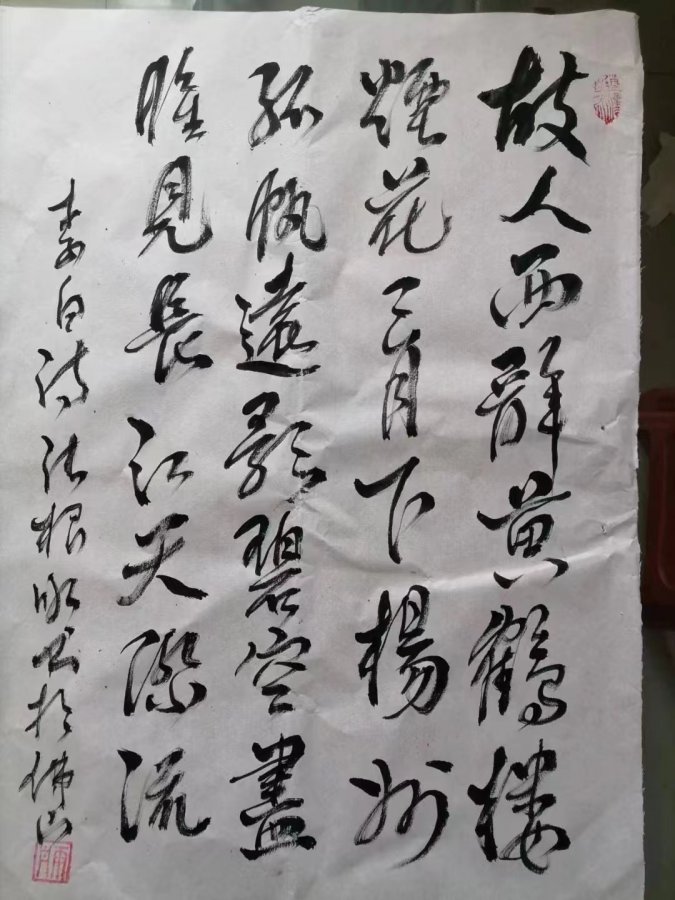 故人西辭黄鶴樓
煙花三月下楊州
孤帆遠影碧空盡
唯見長江天際流
李白诗 张根明书於佛山